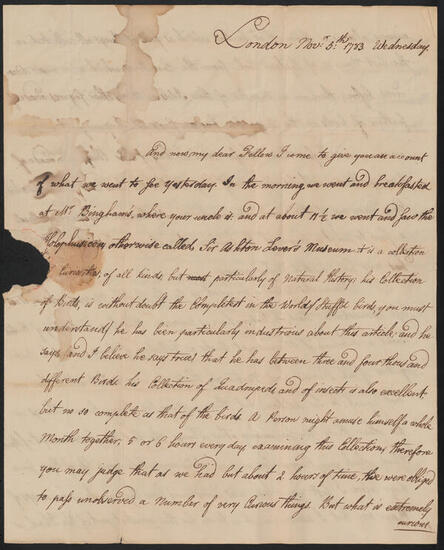 London Nov.r 5.th 1783 Wednesday.
And now my dear Fellow I come to give you an account
of what we went to see Yesterday. In the morning we went and breakfasted
at Mr. Bingham's, where your uncle is. and at about 11 ½ we went and saw the
Holophusicon, otherwise called Sir Ashton Lever's Museum. it is a collection
of Curiosities, of all kinds, but most particularly of Natural History; his Collection
of Birds, is without doubt the Completest in the World of stuff'd birds, you must
understand, he has been particularly industrious about this article; and he
says, and I believe he says true; that he has between three and four thousand
different Birds his Collection of Quadrupeds and of insects is also excellent.
but no so complete as that of the birds. A Person might amuse himself a whole
Month together, 5 or 6 hours every day, examining this Collection, therefore
you may judge that as we had but about 2 hours of time, we were obliged
to pass unobserved a number of very Curious things. But what is extremely
curious